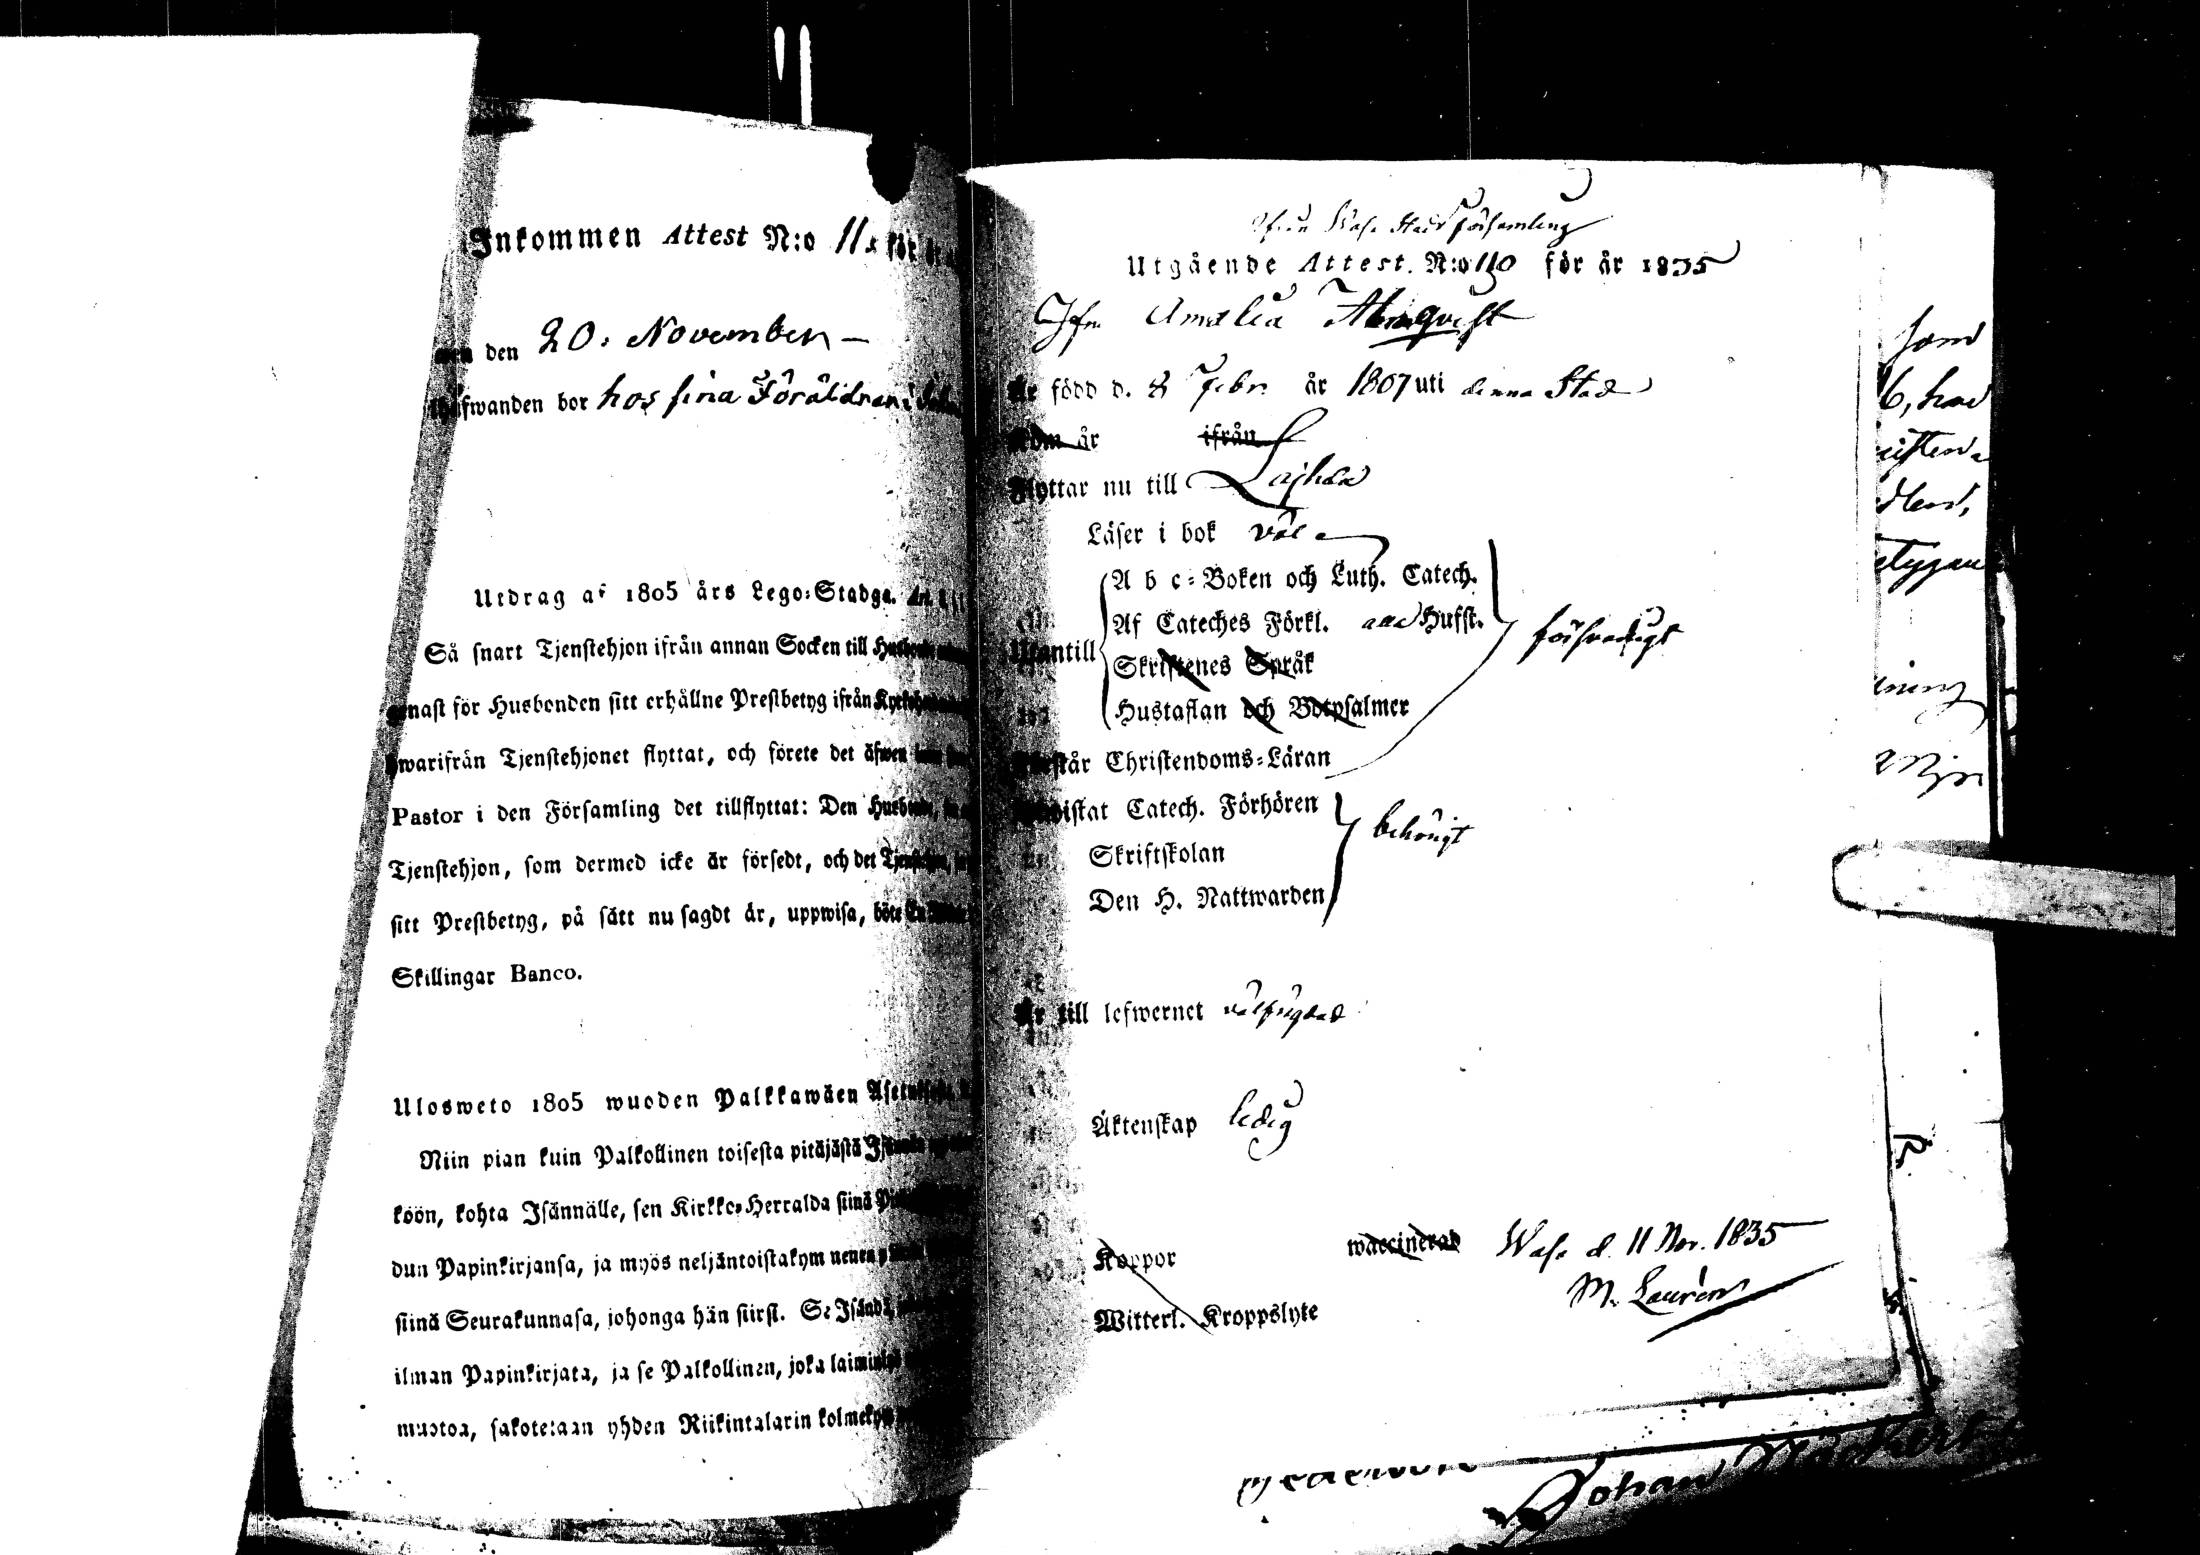 Inkommen Attest N:o 11 för
den 20. November –
fwanden bor hos sina Föräldrar i
Utdrag af 1805 års Lego-Stadga. Art.
Så snart Tjenstehjon ifrån annan Socken till
genast för Husbonden sitt erhållne Prestbetyg ifrån
hwarifrån Tjenstehjonet flyttat, och förete det äfwen
Pastor i den Församling det tillflyttat: Den Husbonde,
Tjenstehjon, som dermed icke är försedt, och det
sitt Prestbetyg, på sätt nu sagdt är, uppwisa, böte
Skillingar Banco.
Ulosweto 1805 wuoden Palkkawäen
Niin pian kuin Palkollinen toisesta pitäjästä
köön, kohta Isännälle, sen Kirkko-Herralda siinä
dun Papinkirjansa, ja myös neljäntoistakym nenen
siinä Seurakunnasa, johonga hän siirst. Se Isändä,
ilman Papinkirjata, ja se Palkollinen, joka
muotoa, sakotetaan yhden Riikintalarin
ifrån Wasa Stads församling
Utgående Attest. N:o 110 för år 1835
Jgfru Amalia Almqvist
Är född d. 8 Febr. år 1807 uti denna Stad
Kom år ifrån
Flyttar nu till Lajhela
Läser i bok väl
A b c-Boken och Luth. Catech.
Af Cateches Förkl. alla Hufst.
försvarligt
Utantill
Skriftenes Språk
Hustaflan och Botpsalmer
Förstår Christendoms-Läran
Bewistat Catech. Förhören
behörigt
Skriftskolan
Den H. Nattwarden
Är till lefwernet välfrejdad
Äktenskap ledig
Koppor waccinerad
Wasa d. 11 Nov. 1835
M. Laurén
Witterl. Kroppslyte
som
6, har
ning
Johan